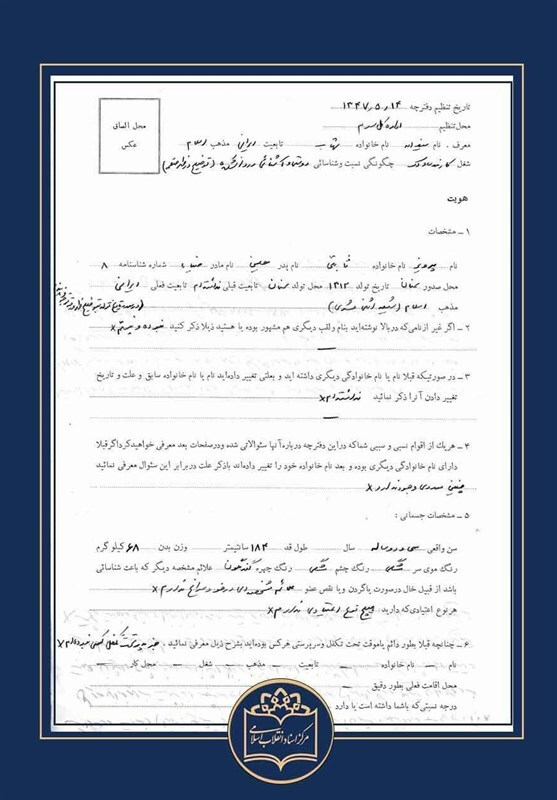 تاریخ تنظیم دفترچه ۱۳۴۷٫۵٫۱۴
محل الصاق
عکس
محل تنظیم اداره کل سوم
معرف . نام نام خانواده تابعیت ایرانی مذهب اسلام
شغل چگونگی نسبت و شناسائی
هویت
۱ ــ مشخصات
نام پرویز نام خانواده ثابتی نام پدر حسین نام مادر شماره شناسنامه ۸
محل صدور سمنان تاریخ تولد ۱۳۱۵ محل تولد سمنان تابعیت قبلی نداشته‌ام تابعیت فعلی ایرانی
مذهب اسلام
۲ ــ اگر غیر از نامی‌که دربالا نوشته‌اید بنام ولقب دیگری هم مشهور بوده یا هستید ذیلا ذکر کنید نبوده و نیستم X
۳ ــ در صورتیکه قبلا نام یا نام خانوادگی دیگری داشته اید و بعلتی تغییر داده‌اید نام یا نام خانواده سابق و علت و تاریخ
تغییر دادن آنرا ذکر نمائید نداشته‌ام X
۴ ــ هریك از اقوام نسبی و سببی شما که در این دفترچه درباره آنها سئوالاتی شده ودرصفحات بعد معرفی خواهیدکرداگرقبلا
دارای نام خانوادگی دیگری بوده و بعد نام خانواده خود را تغییر داده‌اند باذکر علت دربرابر این سئوال معرفی نمائید
چنین موردی وجود ندارد X
۵ ــ مشخصات جسمانی :
سن واقعی سی و دو ساله سال طول قد ۱۸۴ سانتیمتر وزن بدن ۶۸ کیلو گرم
رنگ موی سر مشکی رنگ چشم مشکی رنگ چهره گندمگون علائم مشخصه دیگر که باعث شناسائی
باشد از قبیل خال درصورت یاگردن ویا نقص عضو ندارم X
هر نوع اعتیادی‌که دارید: هیچ نوع اعتیادی ندارم X
۶ ــ چنانچه قبلا بطور دائم یاموقت تحت تکفل وسرپرستی هرکس بوده‌اید بشرح ذیل معرفی نمائید .
نام ــ نام خانواده ــ تابعیت ــ مذهب ــ شغل ــ محل کار ــ
محل اقامت فعلی بطور دقیق ــ
درجه نسبتی‌که باشما داشته است یا دارد
مرکز اسناد انقلاب اسلامی